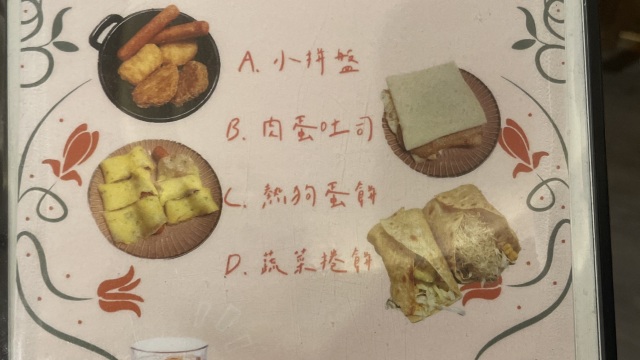 A. 小拼盤
B. 肉蛋吐司
C. 熱狗蛋餅
D. 蔬菜捲餅